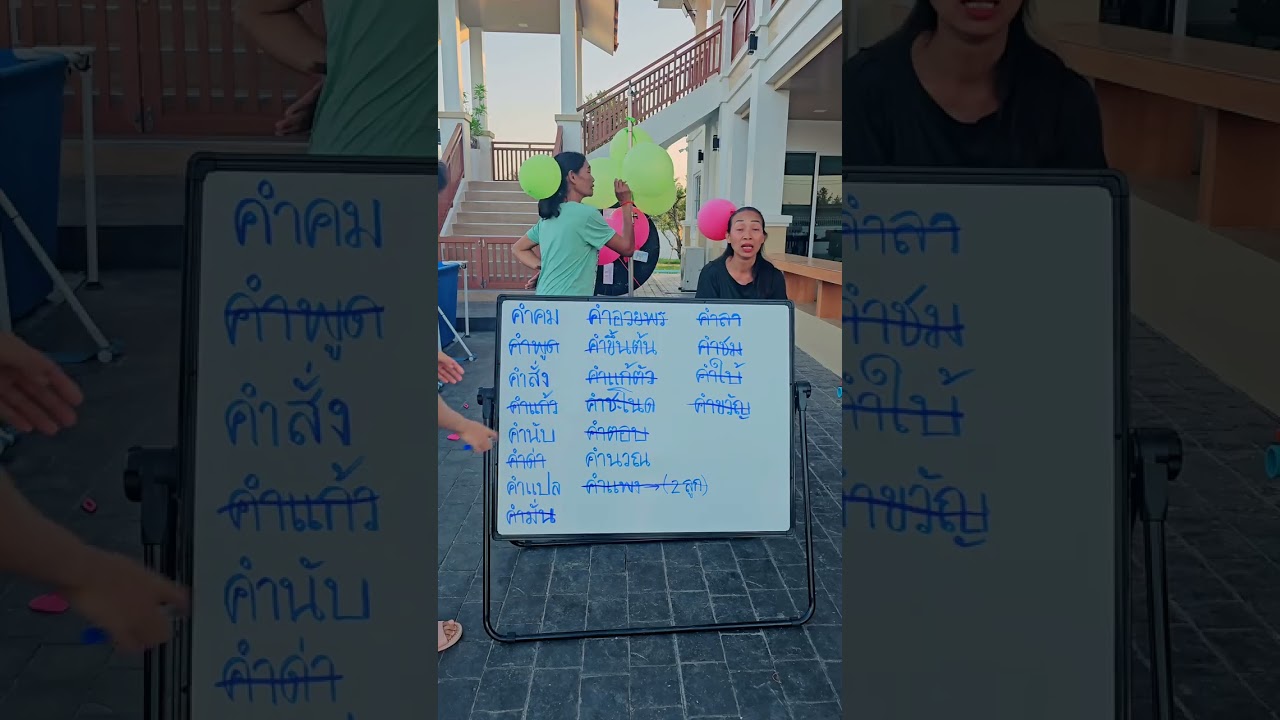 คำคม
คำพูด
คำสั่ง
คำแก้ว
คำนับ
คำด่า
คำแปล
คำมั่น
คำอวยพร
คำขึ้นต้น
คำแก้ตัว
คำชะโนด
คำตอบ
คำนวณ
คำแพง→(2 ลูก)
คำลา
คำชม
คำใบ้
คำขวัญ